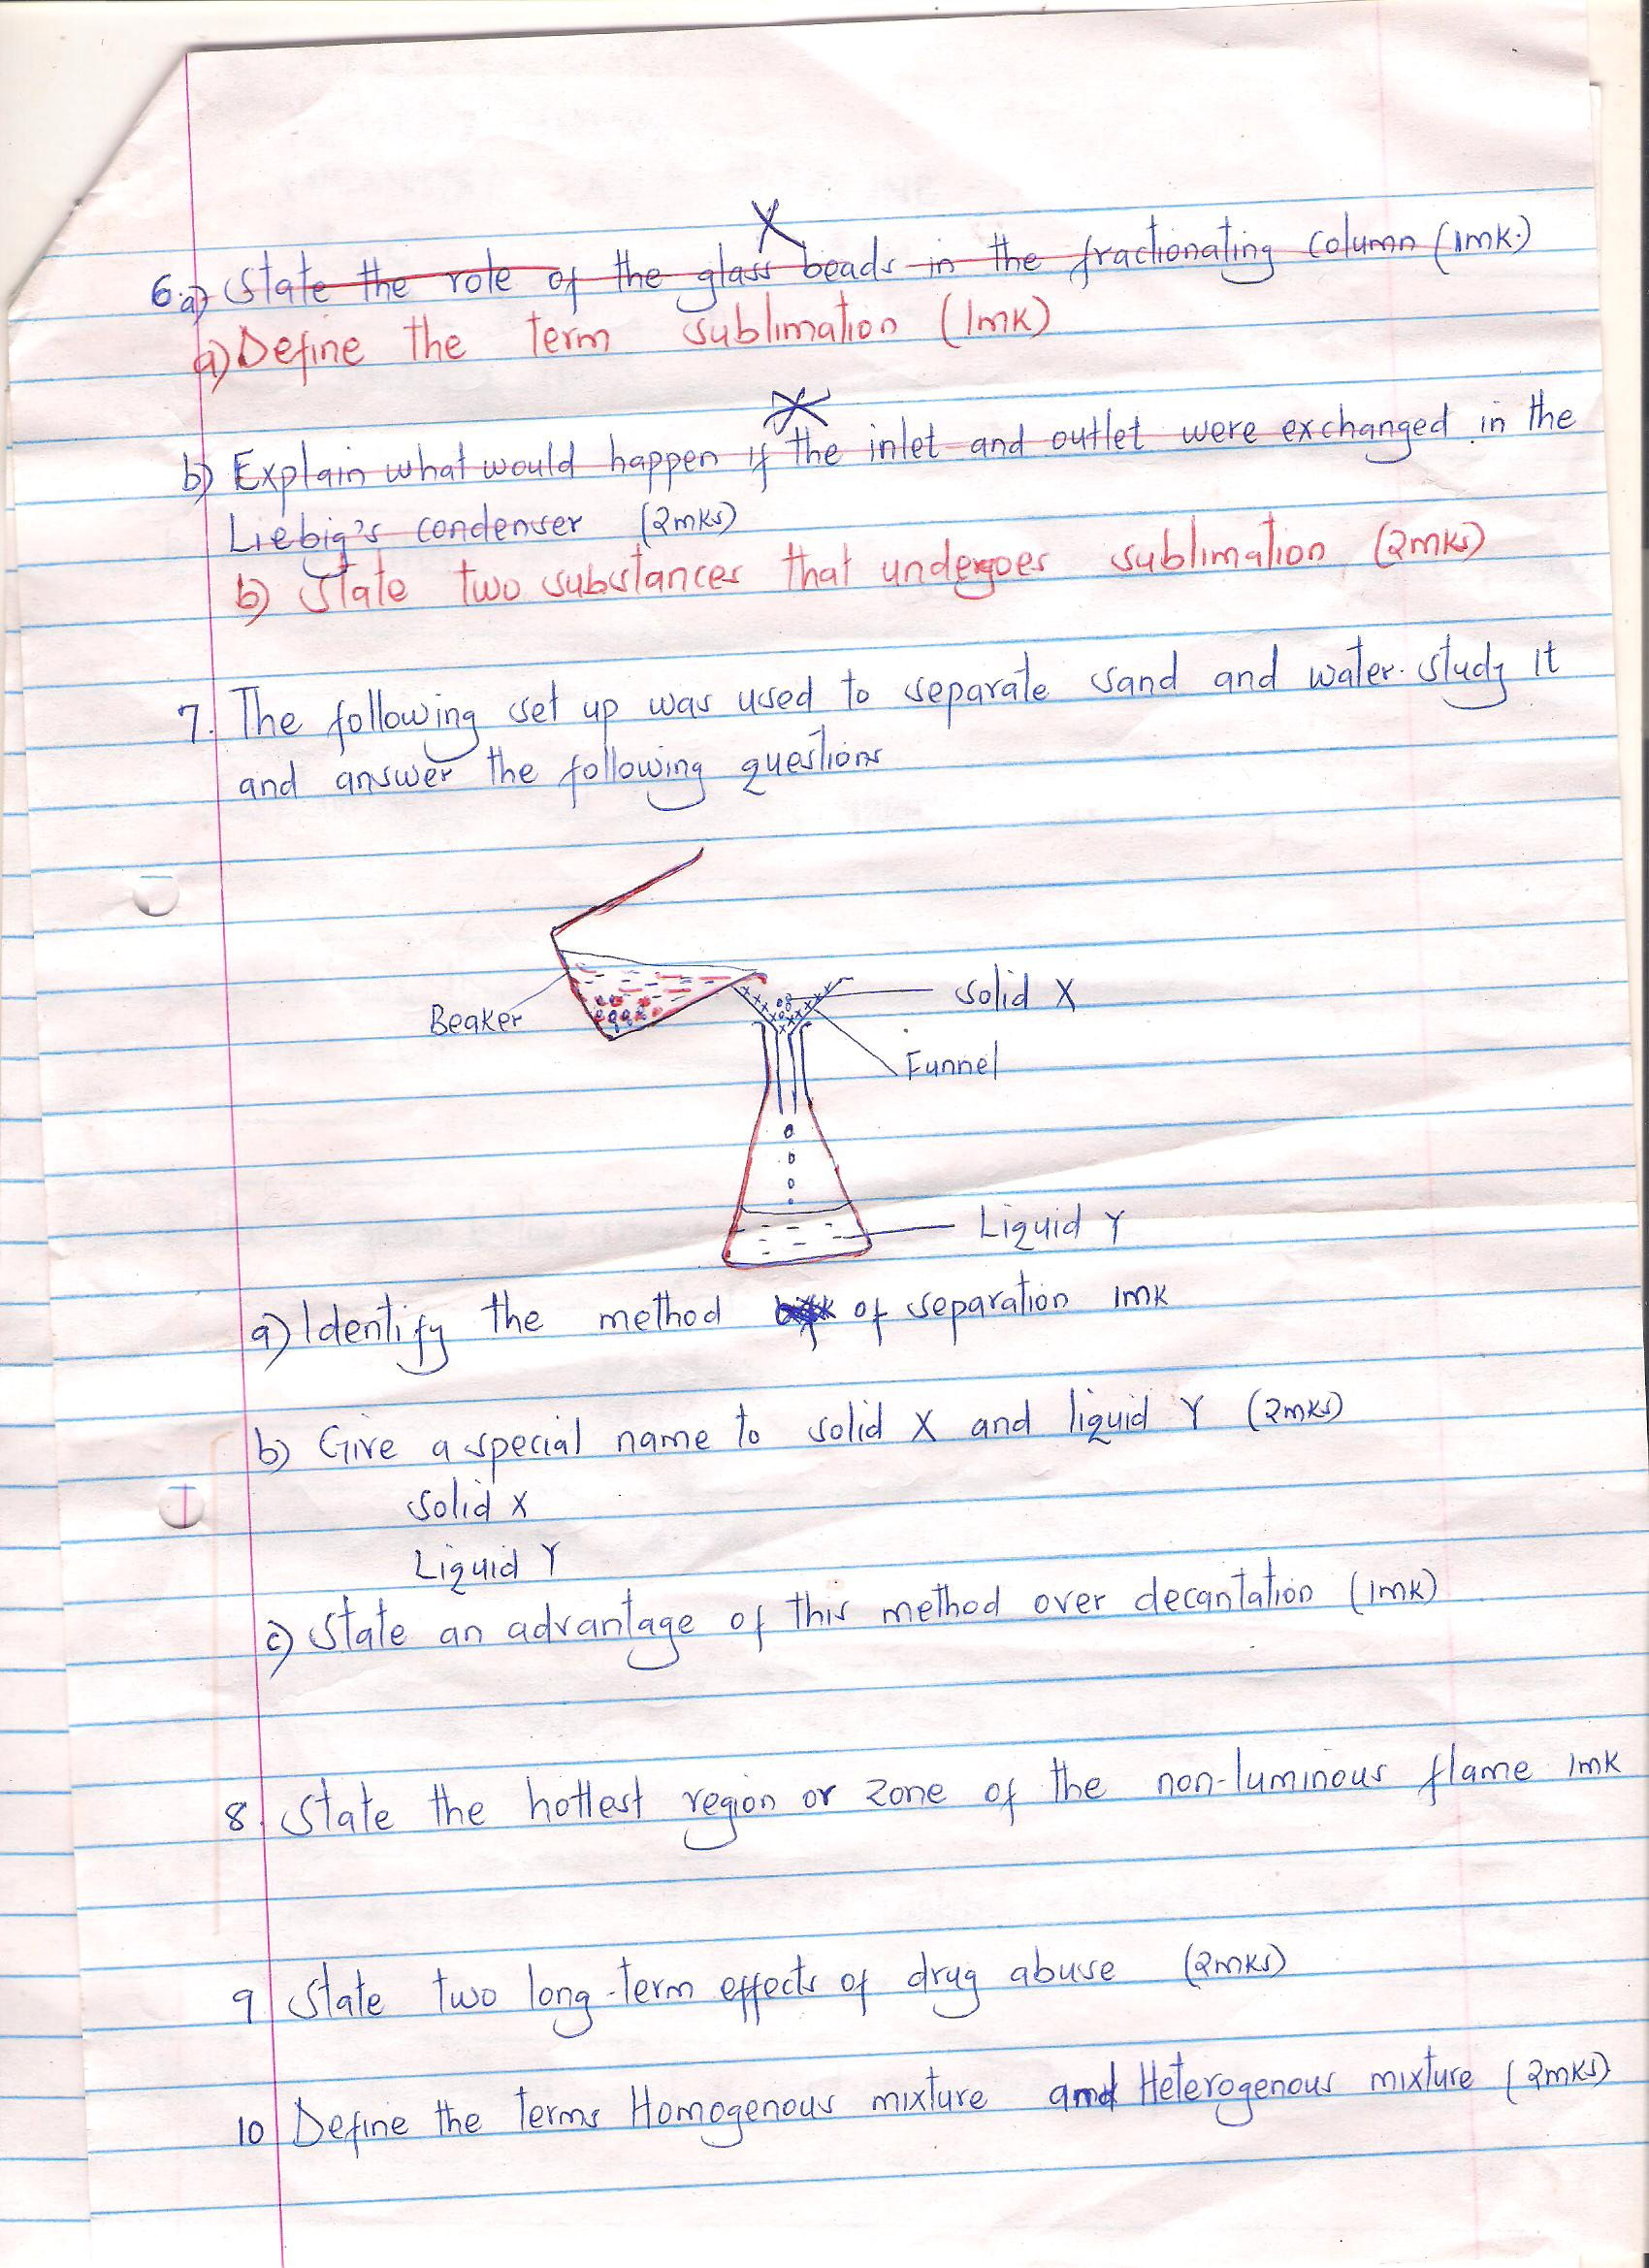 6.a) State the role of the glass beads in the fractionating column (1mk.)
a) Define the term sublimation (1mk)
b) Explain what would happen if the inlet and outlet were exchanged in the
Liebig's condenser (2mks)
b) State two substances that undergoes sublimation (2mks)
7. The following set up was used to separate sand and water. study it
and answer the following questions
Beaker
Solid X
Funnel
Liquid Y
a) Identify the method of separation 1mk
b) Give a special name to solid X and liquid Y (2mks)
Solid X
Liquid Y
c) State an advantage of this method over decantation (1mk)
8. State the hottest region or zone of the non-luminous flame 1mk
9 State two long-term effects of drug abuse (2mks)
10 Define the terms Homogenous mixture and Heterogenous mixture (2mks)